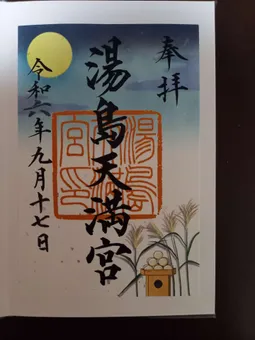 奉拝
湯島天満宮
令和六年九月十七日